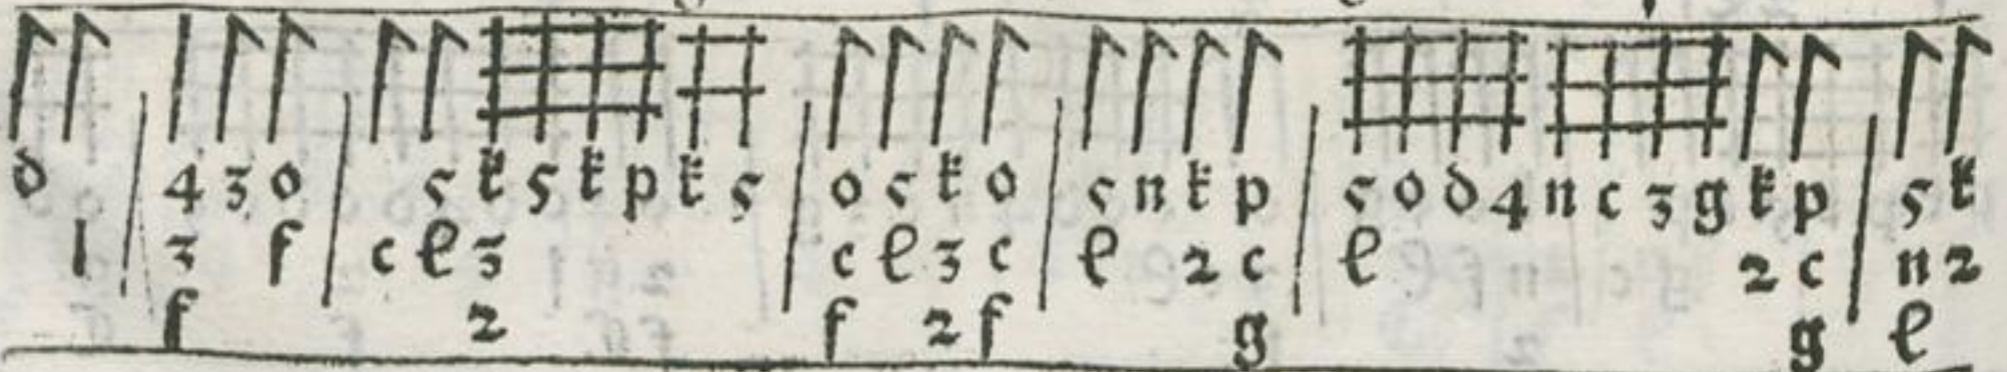 d 4 3 o 5 k 5 k p k 5 o 5 k o 5 n k p 5 o d 4 n c 3 g k p 5 k
l 3 f c e 3 c e 3 c e 2 c e 2 c n 2
f 2 f 2 f g g e